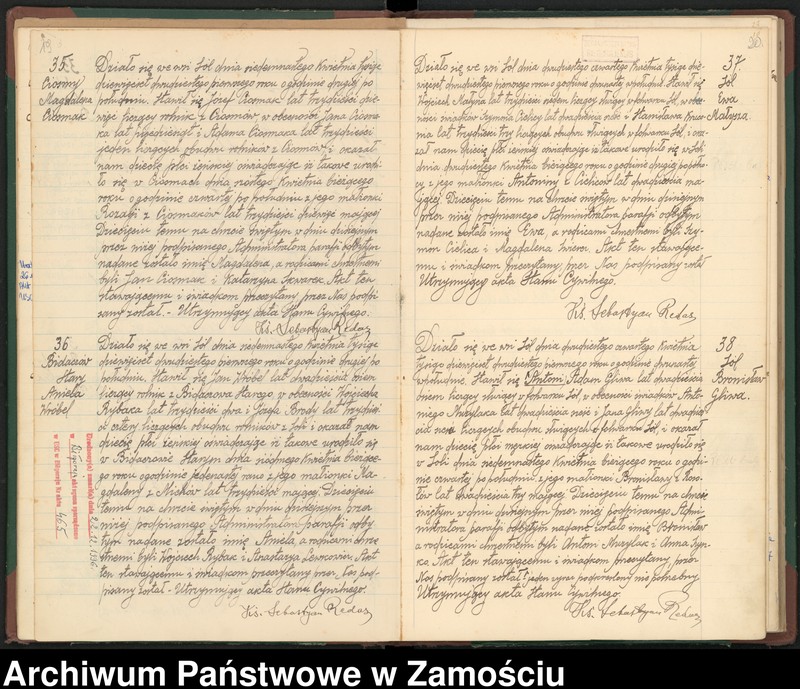 35
Ciosmy
Magdalena
Ciosmak
Działo się we wsi Sól dnia siedemnastego Kwietnia tysiąc
dziewięćset dwudziestego pierwszego roku o godzinie drugiej po
południu. Stawił się Józef Ciosmak lat trzydzieści dzie-
więć liczący rolnik z Ciosmów w obecności Jana Ciosma-
ka lat pięćdziesiąt i Adama Ciosmaka lat trzydzieści
jeden liczących obydwu rolników z Ciosmów i okazał
nam dziecię płci żeńskiej oświadczając iż takowe urodzi-
ło się w Ciosmach dnia szóstego Kwietnia bieżącego
roku o godzinie czwartej po południu z jego małżonki
Rozalji z Ciosmaków lat trzydzieści dziewięć mającej
Dziecięciu temu na chrzcie świętym w dniu dzisiejszym
przez niżej podpisanego Administratora parafji odbytym
nadane zostało imię Magdalena, a rodzicami chrzestnemi
byli Jan Ciosmak i Katarzyna Skwarek. Akt ten
stawającemu i świadkom przeczytany przez Nas podpi-
sany został. - Utrzymujący akta Stanu Cywilnego.
Ks. Sebastyan Redas
36
Bidaczów
Stary
Aniela
Wróbel
Działo się we wsi Sól dnia siedemnastego Kwietnia tysiąc
dziewięćset dwudziestego pierwszego roku o godzinie drugiej po
południu. Stawił się Jan Wróbel lat dwadzieścia osiem
liczący rolnik z Bidaczowa Starego w obecności Wojciecha
Rybaka lat trzydzieści dwa i Józefa Brody lat trzydzie-
ści cztery liczących obydwu rolników z Soli i okazał nam
dziecię płci żeńskiej oświadczając iż takowe urodziło się
w Bidaczowie Starym dnia siódmego Kwietnia bieżące-
go roku o godzinie jedenastej rano z jego małżonki Ma-
gdaleny z lat trzydzieści mającej. Dziecięciu
temu na chrzcie świętym w dniu dzisiejszym przez
niżej podpisanego Administratora parafji odby-
tym nadane zostało imię Aniela, a rodzicami chrze-
stnemi byli Wojciech Rybak i Anastazja Lewkowicz. Akt
ten stawającemu i świadkom przeczytany przez Nas pod-
pisany został. - Utrzymujący akta Stanu Cywilnego.
Ks. Sebastyan Redas
37
Sól
Ewa
Małysza
Działo się we wsi Sól dnia dwudziestego czwartego Kwietnia tysiąc dzie-
więćset dwudziestego pierwszego roku o godzinie dwunastej w południe. Stawił się
Wojciech lat trzydzieści siedem liczący służący w folwarku Sól, w obec-
ności świadków Szymona Cielicy lat dwadzieścia i Stanisława
lat trzydzieści trzy liczących obydwu służących w folwarku Sól, i oka-
zał nam dziecię płci żeńskiej oświadczając iż takowe urodziło się w Soli
dnia dwudziestego Kwietnia bieżącego roku o godzinie drugiej po północ-
cy z jego małżonki Antoniny z Cieliców lat dwadzieścia ma-
jącej Dziecięciu temu na chrzcie świętym w dniu dzisiejszym
przez niżej podpisanego Administratora parafji odbytym
nadane zostało imię Ewa, a rodzicami chrzestnemi byli Szy-
mon Cielica i Magdalena. Akt ten stawające-
mu i świadkom przeczytany, przez Nas podpisany został
Utrzymujący akta Stanu Cywilnego.
Ks. Sebastyan Redas
38
Sól
Bronisław
Gliwa.
Działo się we wsi Sól dnia dwudziestego czwartego Kwietnia
tysiąc dziewięćset dwudziestego pierwszego roku o godzinie dwunastej
w południe. Stawił się Antoni Adam Gliwa lat dwadzieścia
osiem liczący służący w folwarku Sól w obecności świadków Anto-
niego Muzylaka lat dwadzieścia sześć i Jana Gliwy lat dwadzie-
ścia liczących obydwu służących w folwarku Sól, i okazał
nam dziecię płci męzkiej oświadczając iż takowe urodziło się
w Soli dnia siedemnastego Kwietnia bieżącego roku o godzi-
nie czwartej po południu z jego małżonki Bronisławy z
lat dwadzieścia trzy mającej. Dziecięciu temu na chrzcie
świętym w dniu dzisiejszym przez niżej podpisanego Admi-
nistratora parafji odbytym nadane zostało imię Bronisław
a rodzicami chrzestnemi byli Antoni Muzylak i Anna
Akt ten stawającemu i świadkom przeczytany, przez
Nas podpisany został
Utrzymujący akta Stanu Cywilnego.
Ks. Sebastyan Redas
Archiwum Państwowe w Zamościu